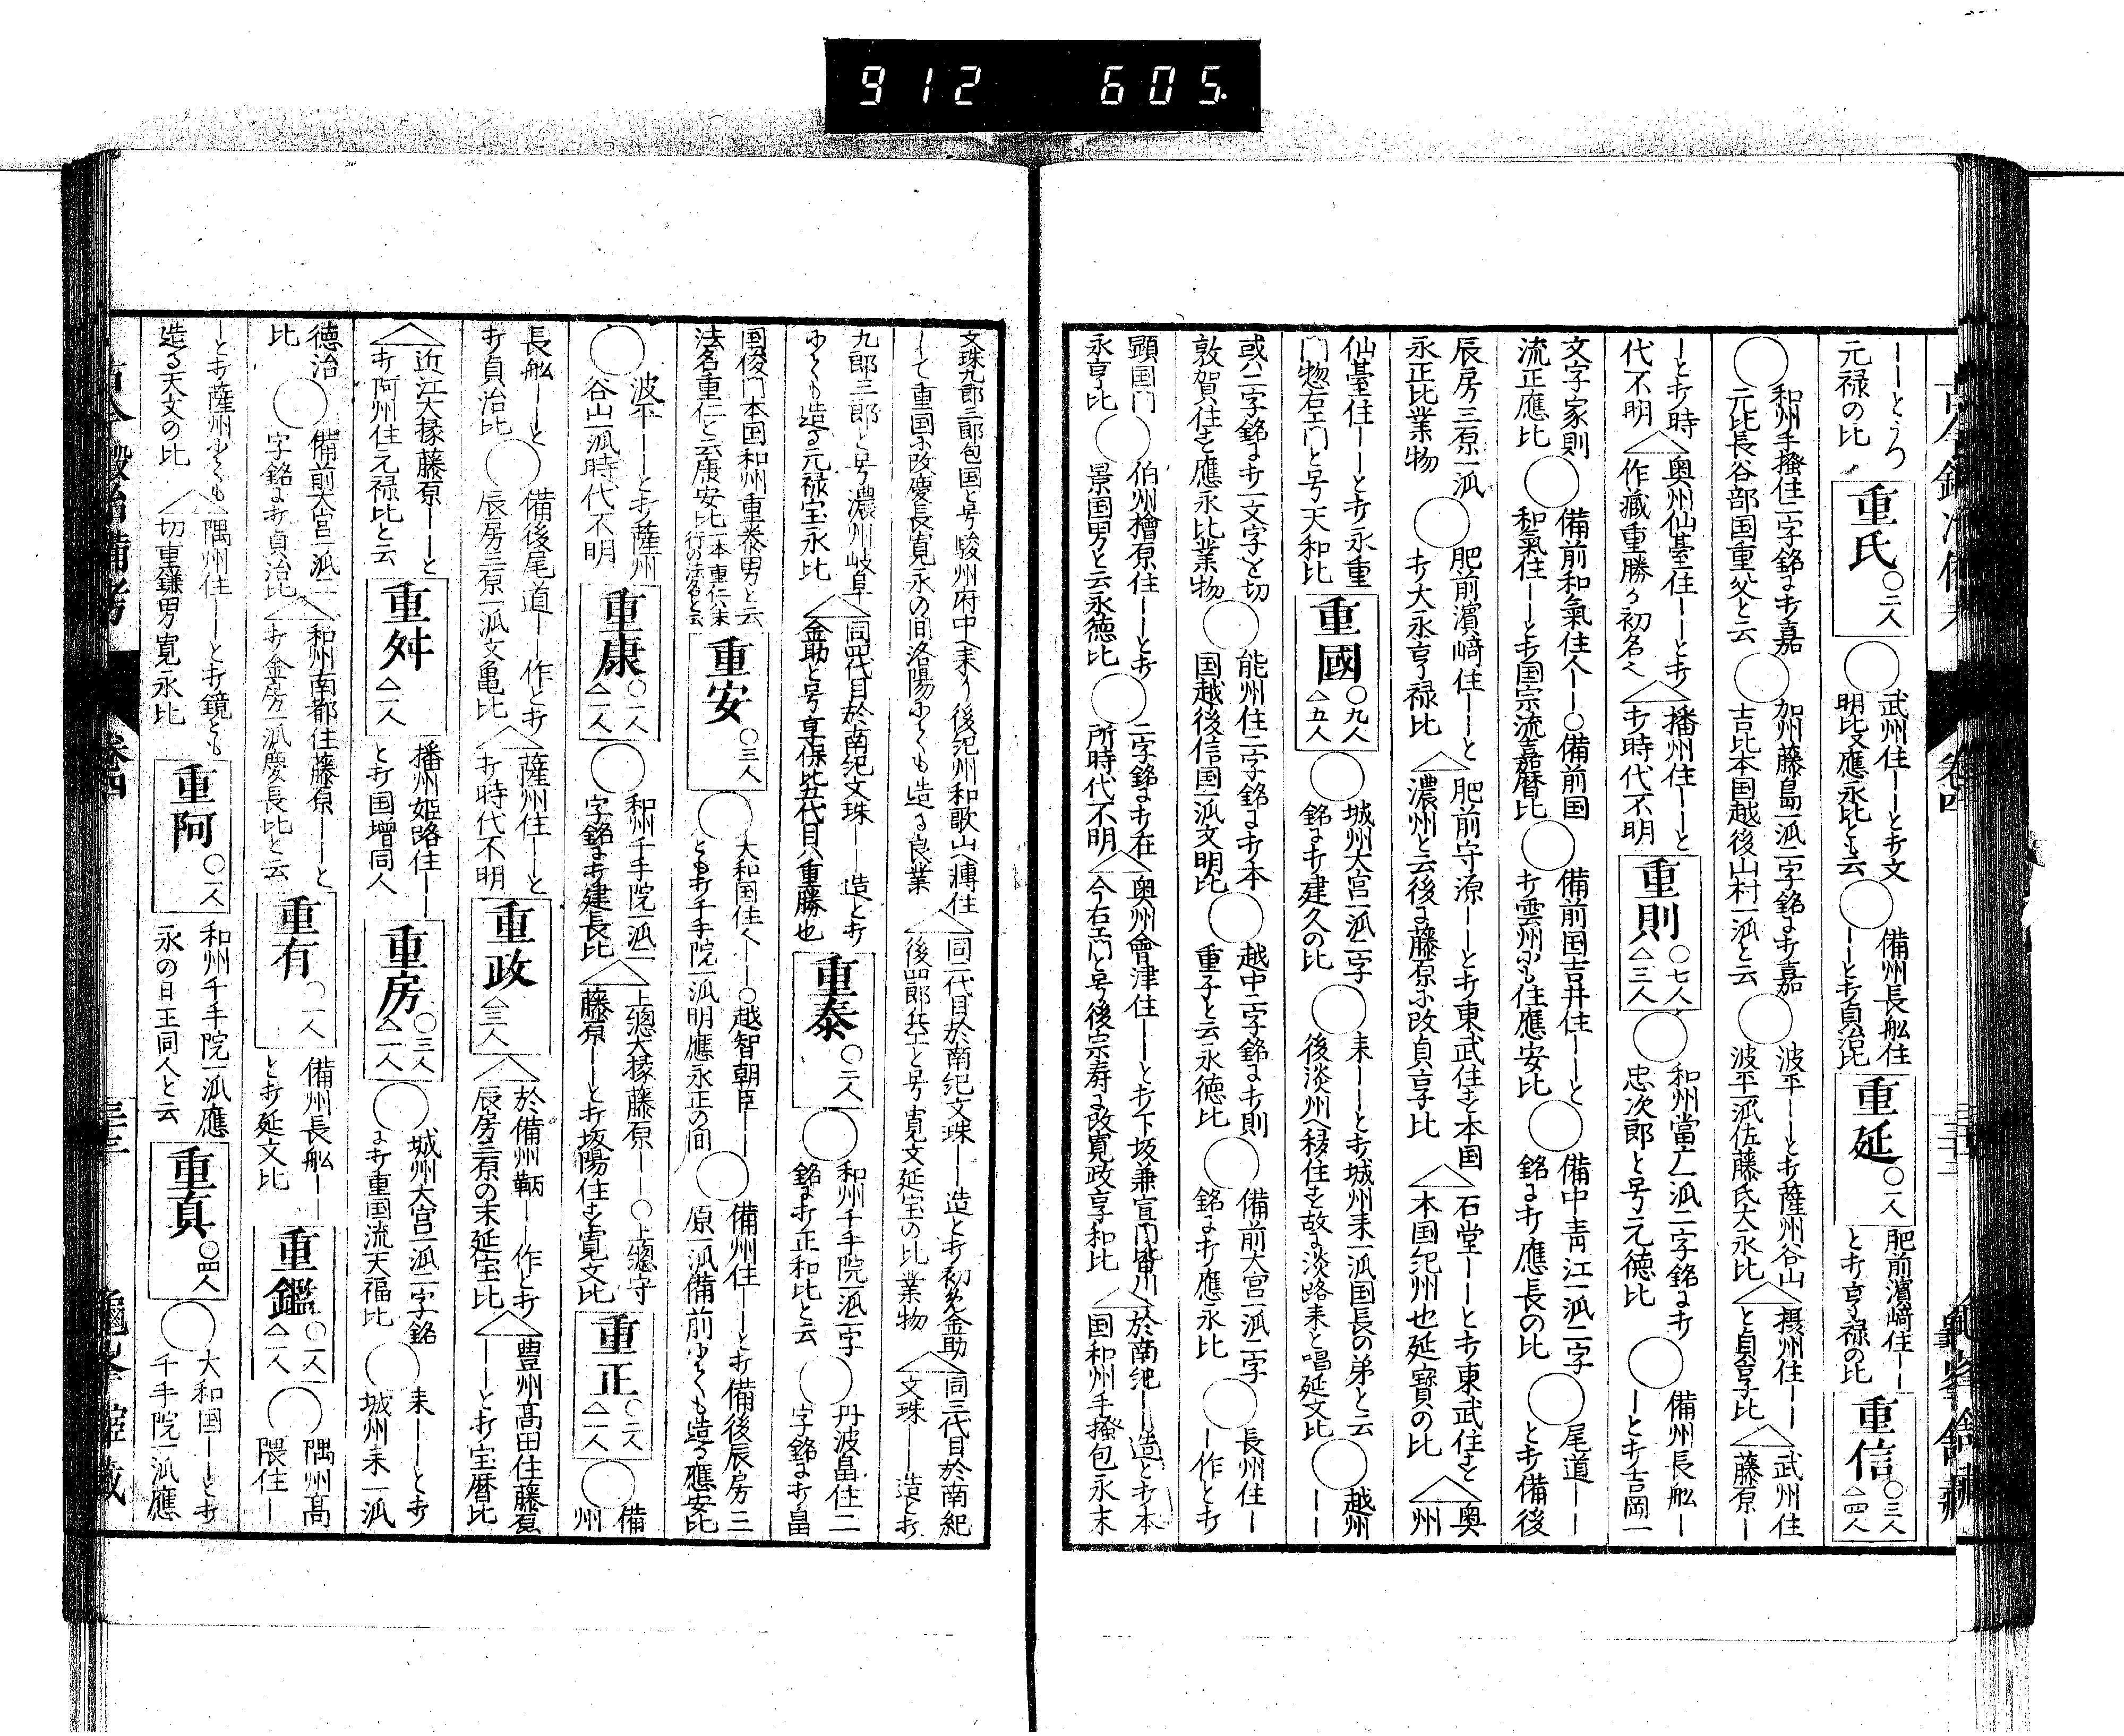 912 605.
――とうつ
元禄の比
重氏 ○二人
○武州住――とオ文
明比又應永比とも云
○備州長舩住
――とオ貞治比
重延 ○一人
肥前濱﨑住――
とオ亨禄の比
重信 ○三人 △四人
○和州手掻住二字銘にオ嘉
元比長谷部国重父と云
○加州藤島一派二字銘にオ嘉
吉比本国越後山村一派と云
○波平――とオ薩州谷山
波平一派佐藤氏大永比
△摂州住――
と貞享比
△武州住
藤原―
―とオ時
代不明
△奥州仙臺住――とオ
作藏重勝か初名へ
△播州住――と
オ時代不明
重則 ○七人 △三人
○和州當广一派二字銘にオ
忠次郎と号元徳比
○備州長舩―
―とオ吉岡一
文字家則
流正應比
○備前和氣住人――○備前国
和氣住――とオ国宗流嘉暦比
○備前国吉井住――と
オ雲州にも住應安比
○備中青江一派二字
銘にオ應長の比
○尾道――
とオ備後
辰房三原一派
永正比業物
○肥前濱﨑住――と
オ大永亨禄比
△肥前守源――とオ東武住を本国
濃州と云後に藤原に改貞享比
△石堂――とオ東武住を
本国紀州也延寶の比
△奥
州
仙臺住――とオ永重
門惣右エ門と号天和比
重國 ○九人 △五人
○城州大宮一派二字
銘にオ建久の比
○来――とオ城州来一派国長の弟と云
後淡州へ移住を故に淡路来と唱延文比
○越州
――
或ハ二字銘にオ一文字を切
敦賀住を應永比業物
○能州住二字銘にオ本
国越後信国一派文明比
○越中二字銘にオ則
重子と云永徳比
○備前大宮一派二字
銘にオ應永比
○長州住―
―作とオ
顕国門
永亨比
○伯州檜原住――とオ
景国男と云永徳比
○二字銘にオ在
所時代不明
△奥州會津住――とオ下坂兼宣門皆川
今右エ門と号後宗寿に改寛政享和比
△於南紀――造とオ本
国和州手掻包永末
文珠九郎三郎包国と号駿州府中へ来り後紀州和歌山へ轉住
して重国に改慶長寛永の間洛陽にくも造る良業
△同二代目於南紀文珠――造とオ初名金助
後四郎兵エと号寛文延宝の比業物
△同三代目於南紀
文珠――造とオ
九郎三郎と号濃州岐阜
にくも造る元禄宝永比
△同四代目於南紀文珠――造とオ
金助と号享保比五代目ハ重勝也
重泰 ○二人
○和州千手院一派二字
銘にオ正和比と云
○丹波畠住二
字銘にオ畠
国俊門本国和州重泰男と云
法名重仁と云康安比一本重仁ハ末
行の法名と云
重安 ○三人
○大和国住人――○越智朝臣――
ともオ千手院一派明應永正の間
○備州住――とオ備後辰房三
原一派備前にくも造る應安比
○波平――とオ薩州
谷山一派時代不明
重康 ○一人 △一人
○和州千手院一派二
字銘にオ建長比
△上總大掾藤原――○上總守
藤原――とオ坂陽住を寛文比
重正 ○二人 △一人
○備
州
長舩――と
オ貞治比
○備後尾道――作とオ
辰房三原一派文亀比
△薩州住――と
オ時代不明
重政 △三人
△於備州鞆――作とオ
辰房三原の末延宝比
△豊州髙田住藤原
――とオ宝暦比
△近江大掾藤原――と
オ阿州住元禄比と云
重舛 △一人
播州姫路住――
とオ国増同人
重房 ○三人 △一人
○城州大宮一派二字銘
にオ重国流天福比
○来――とオ
城州来一派
徳治
比
○備前大宮一派二
字銘にオ貞治比
△和州南都住藤原――と
オ金房一派慶長比と云
重有 ○一人
備州長舩――
とオ延文比
重鑑 ○一人 △一人
○隅州髙
隈住―
―とオ薩州にくも
造る天文の比
△隅州住――とオ鏡とも
切重鎌男寛永比
重阿 ○一人
和州千手院一派應
永の日王同人と云
重真 ○四人
○大和国――とオ
千手院一派應
古今鍛冶備考 巻四